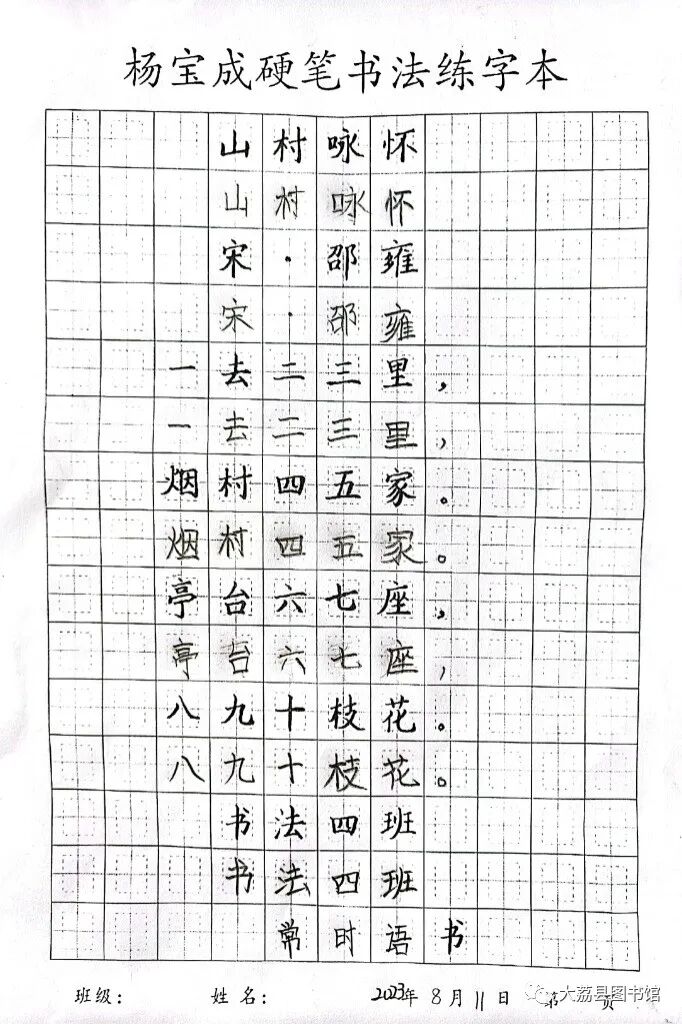 杨宝成硬笔书法练字本
山村咏怀
山村咏怀
宋·邵雍
宋·邵雍
一去二三里，
一去二三里，
烟村四五家。
烟村四五家。
亭台六七座，
亭台六七座，
八九十枝花。
八九十枝花。
书法四班
书法四班
常时语书
班级： 姓名： 2023年8月11日 第 页
大荔县图书馆